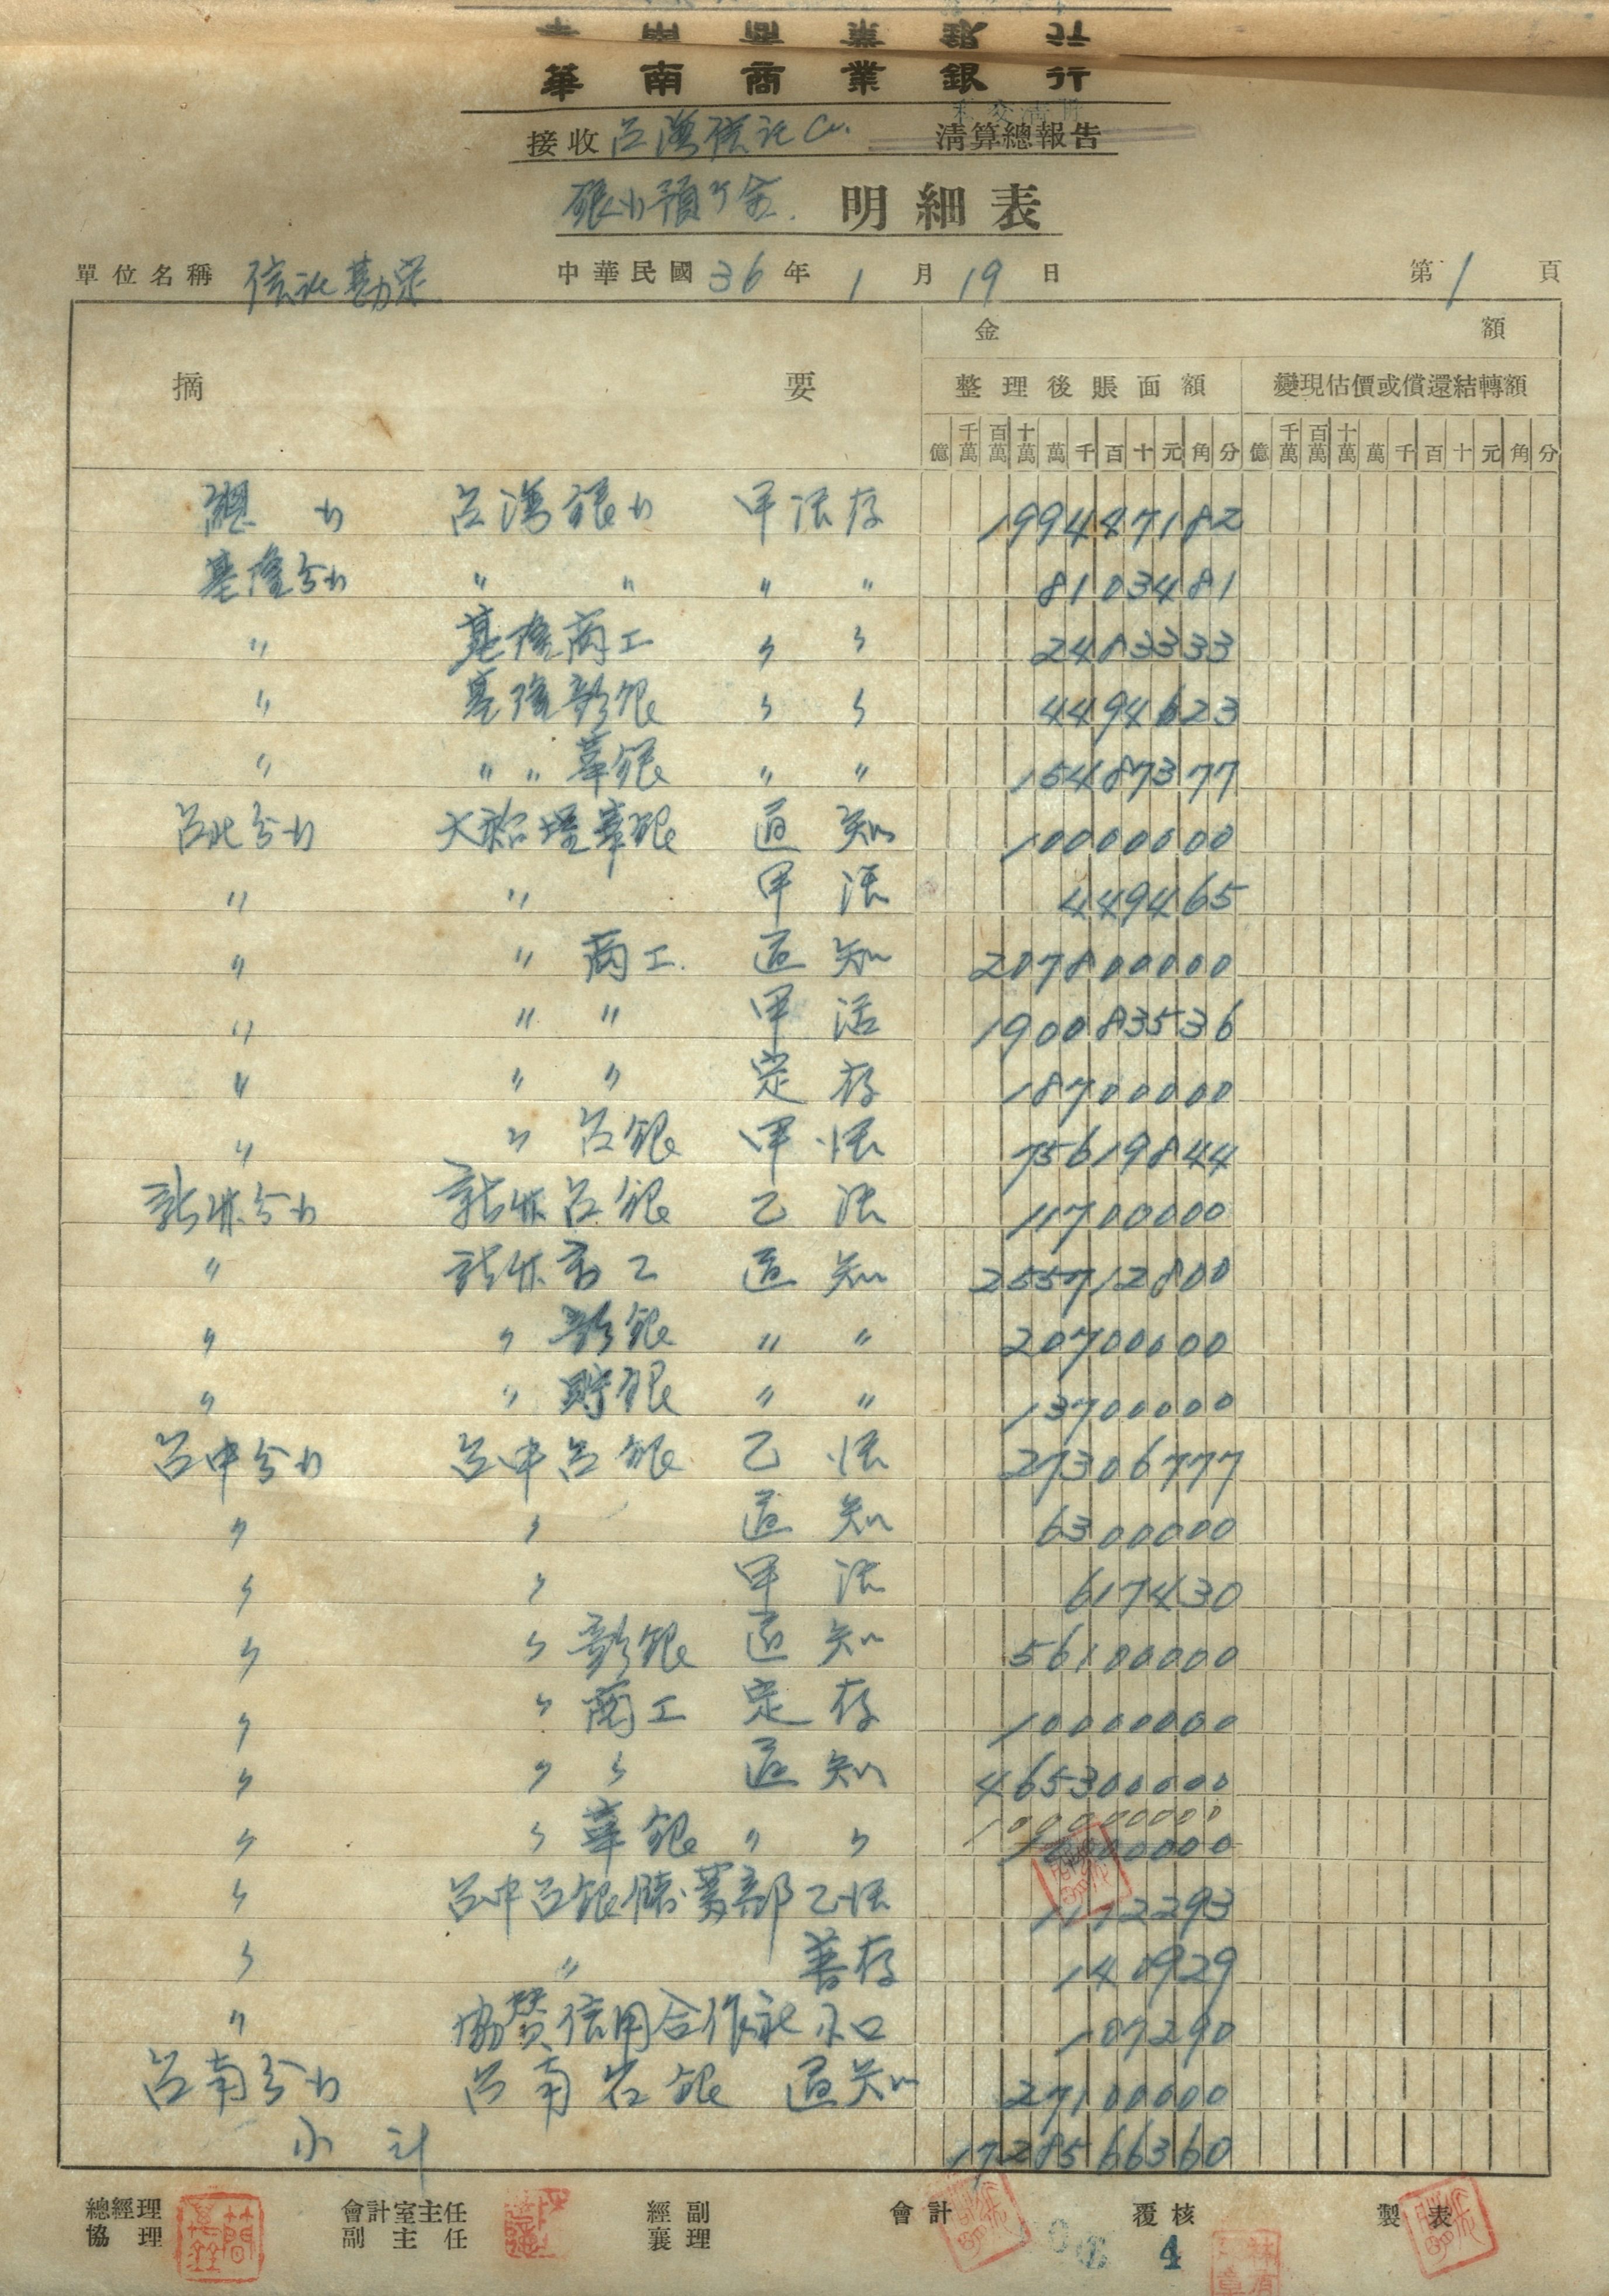 華南商業銀行
接收 台灣信託Co. 清算總報告
銀行預ケ金 明細表
單位名稱 信託勘定 中華民國36年1月19日 第1頁
摘要 金額
整理後賬面額 變現估價或償還結轉額
億 千萬 百萬 十萬 萬 千 百 十 元 角 分 億 千萬 百萬 十萬 萬 千 百 十 元 角 分
總行 台灣銀行 甲活存 199447182
基隆分行 〃 〃 〃 〃 8103481
〃 基隆商工 〃 〃 2483333
〃 基隆彰銀 〃 〃 4494623
〃 〃 〃 華銀 〃 〃 15487377
台北分行 大稻埕華銀 通知 10000000
〃 〃 甲活 449465
〃 〃 商工 通知 207800000
〃 〃 〃 甲活 190083536
〃 〃 〃 定存 18700000
〃 〃 台銀 甲活 75619844
新竹分行 新竹台銀 乙活 11700000
〃 新竹商工 通知 255712800
〃 〃 彰銀 〃 〃 20700000
〃 〃 貯銀 〃 〃 13700000
台中分行 台中台銀 乙活 27306777
〃 〃 通知 6300000
〃 〃 甲活 617430
〃 〃 彰銀 通知 56100000
〃 〃 商工 定存 10000000
〃 〃 〃 通知 465300000
〃 〃 華銀 〃 〃 100000000
〃 台中台銀儲蓄部 乙活 1112293
〃 〃 善存 140929
〃 協贊信用合作社 小口 107290
台南分行 台南台銀 通知 27100000
小計 1728566360
總經理 會計室主任 經副 會計 覆核 製表
協理 副主任 襄理
4